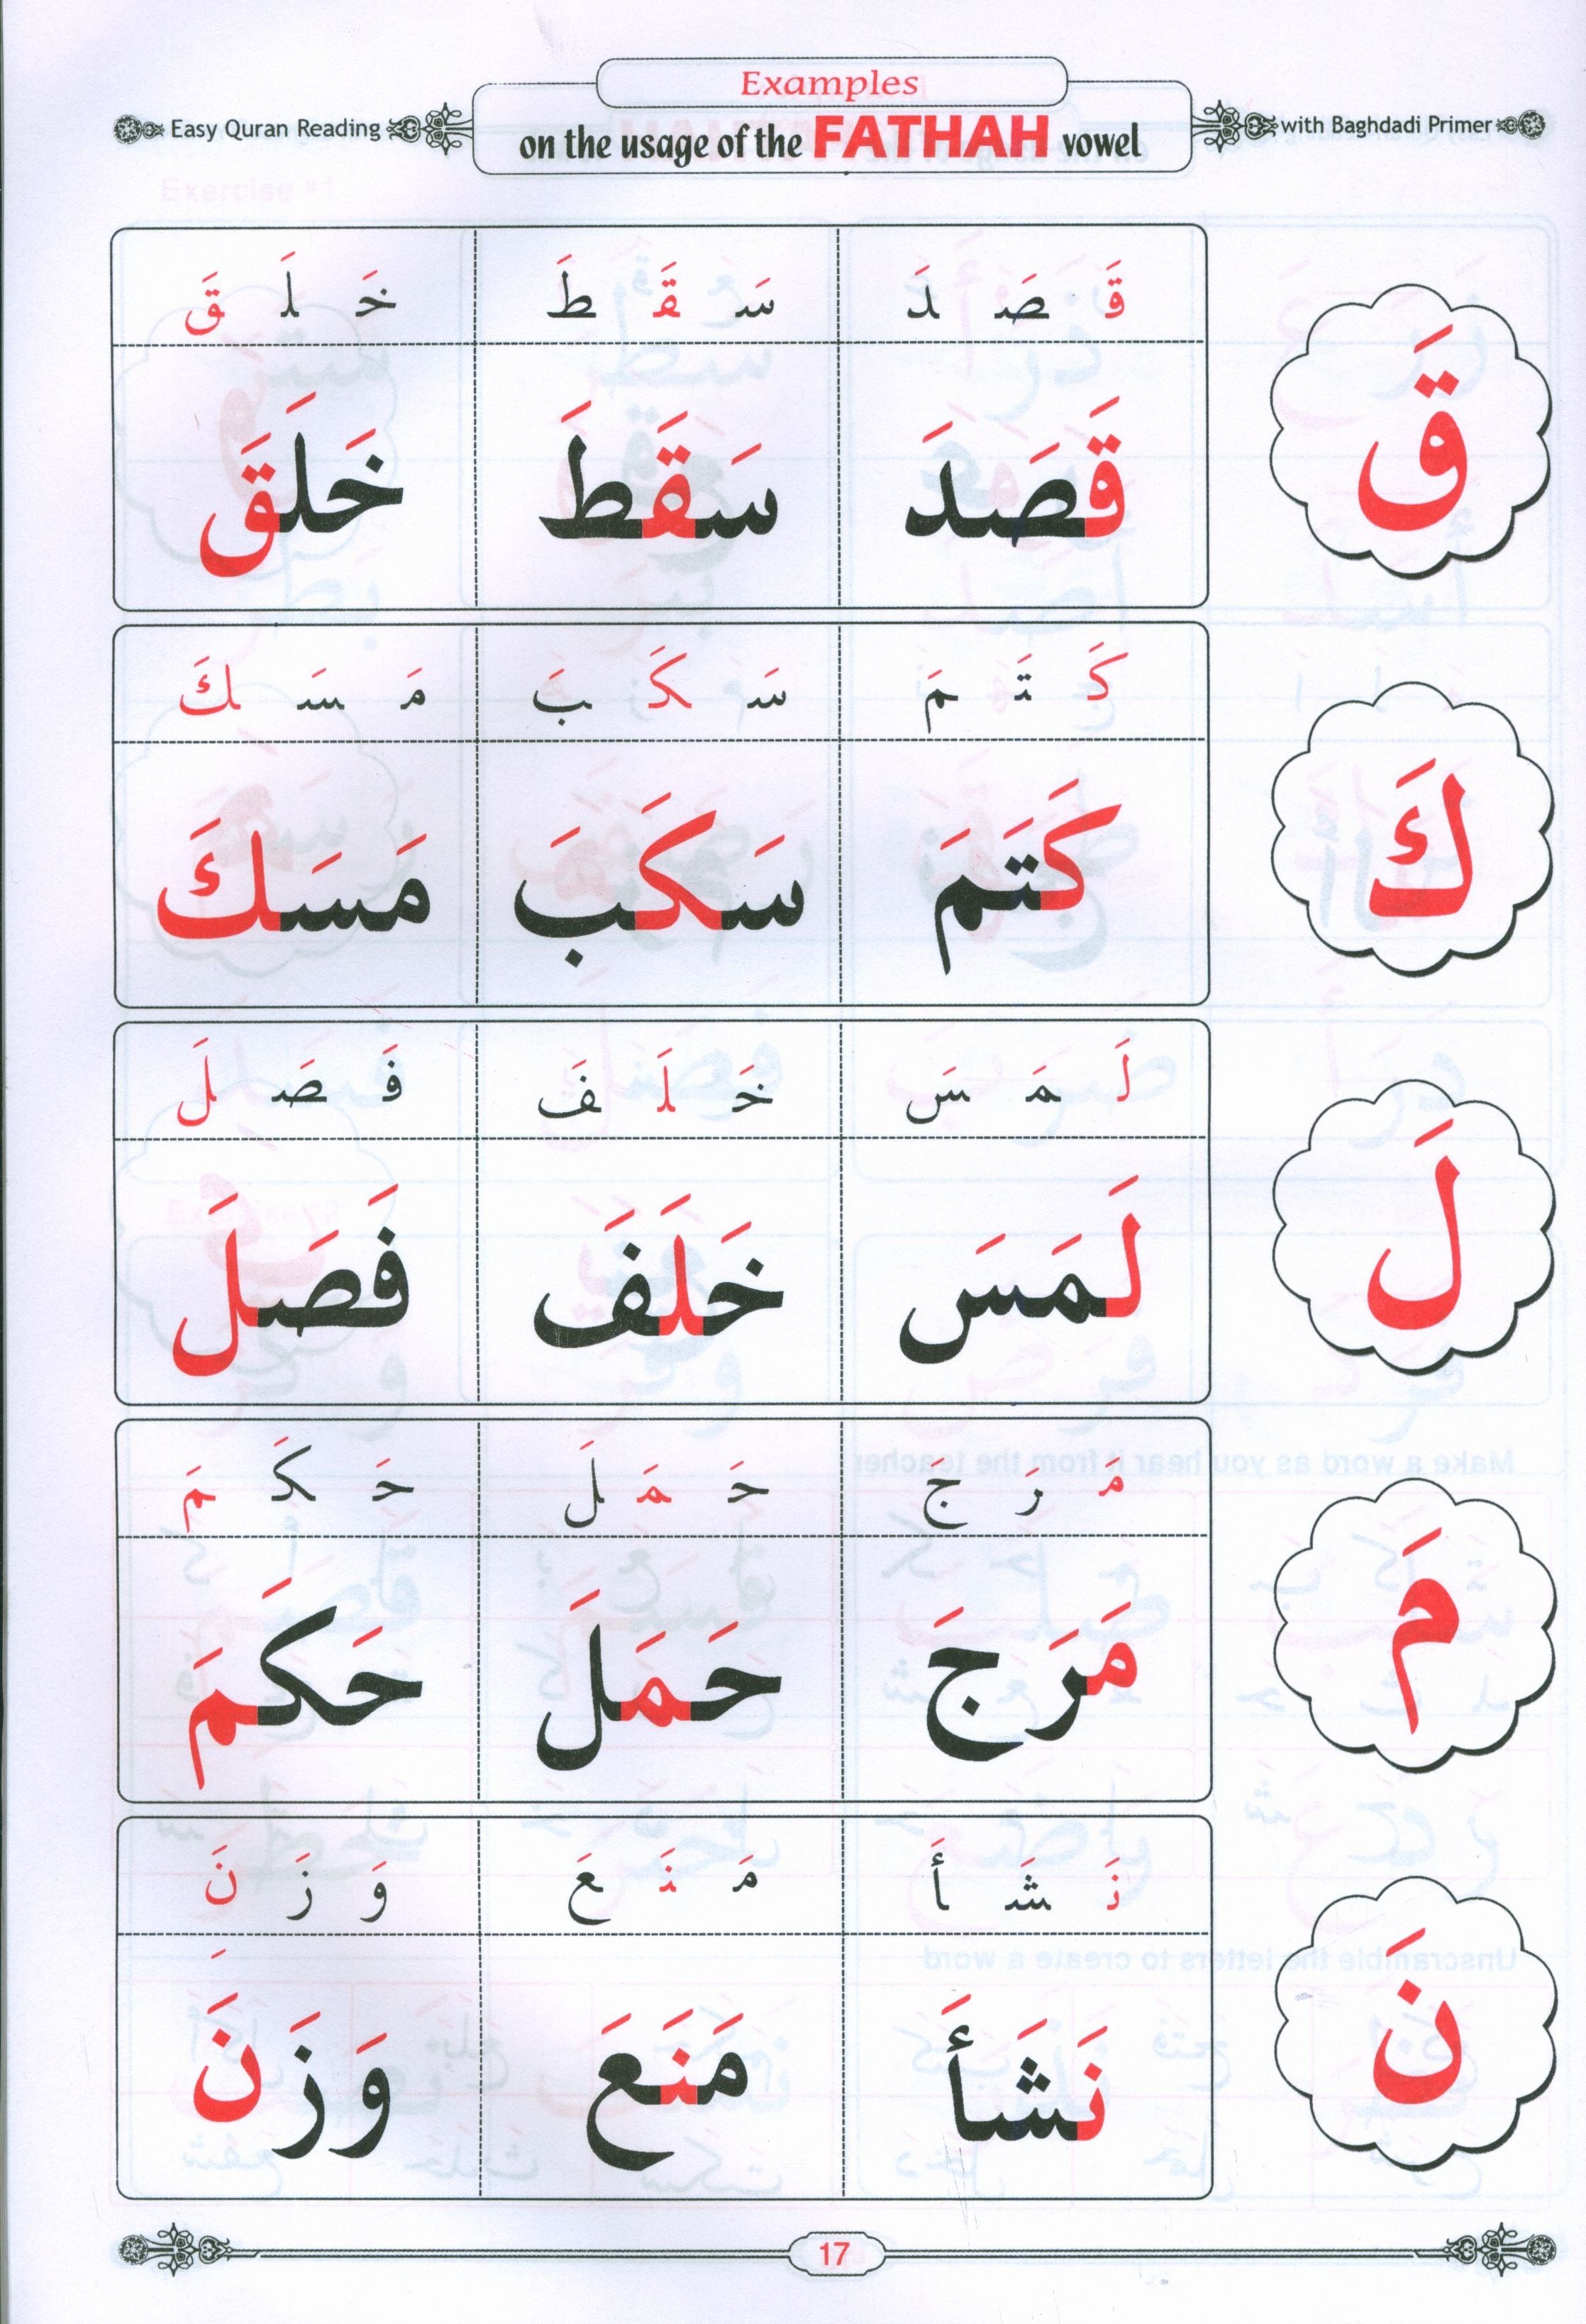 Examples
Easy Quran Reading on the usage of the FATHAH vowel with Baghdadi Primer
قَ صَ دَ سَ قَ طَ خَ لَ قَ
قَ
قَصَدَ سَقَطَ خَلَقَ
كَ تَ مَ سَ كَ بَ مَ سَ كَ
كَ
كَتَمَ سَكَبَ مَسَكَ
لَ مَ سَ خَ لَ فَ فَ صَ لَ
لَ
لَمَسَ خَلَفَ فَصَلَ
مَ رَ جَ حَ مَ لَ حَ كَ مَ
مَ
مَرَجَ حَمَلَ حَكَمَ
نَ شَ أَ مَ نَ عَ وَ زَ نَ
نَ
نَشَأَ مَنَعَ وَزَنَ
17